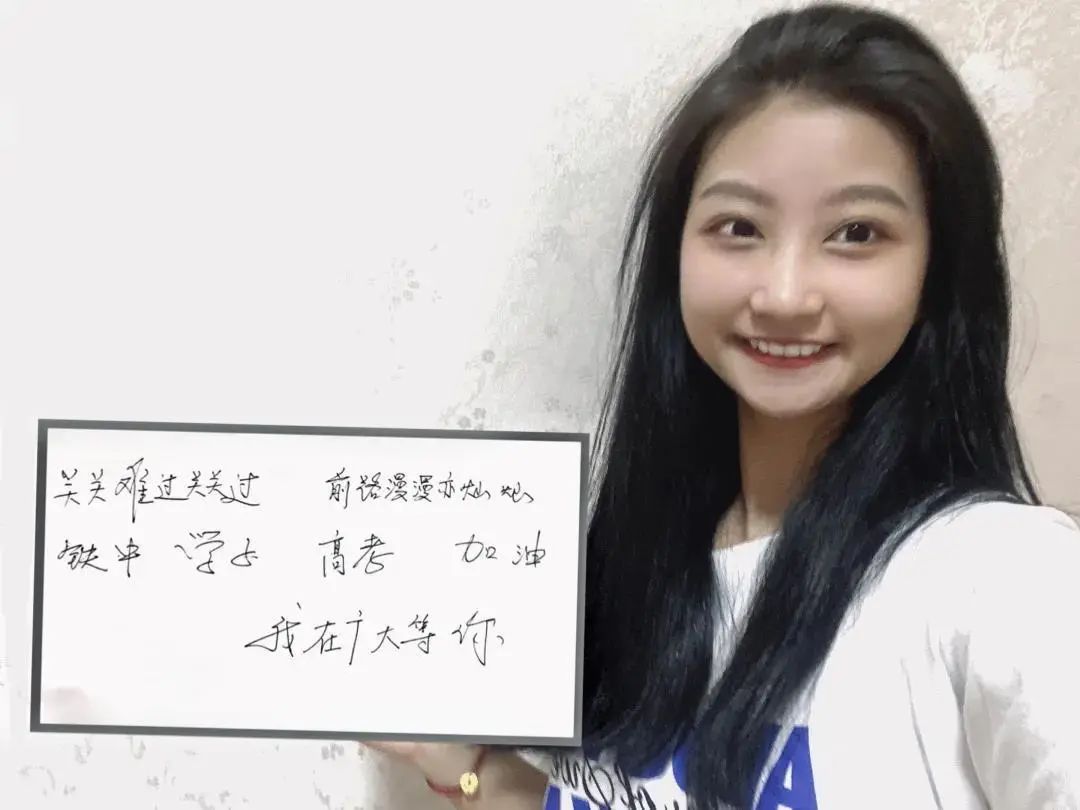 关关难过关关过 前路漫漫亦灿灿
铁中学子 高考 加油
我在广大等你